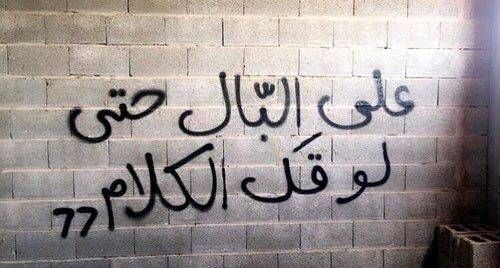 على البّال حتى
لو قَل الكلام ,,